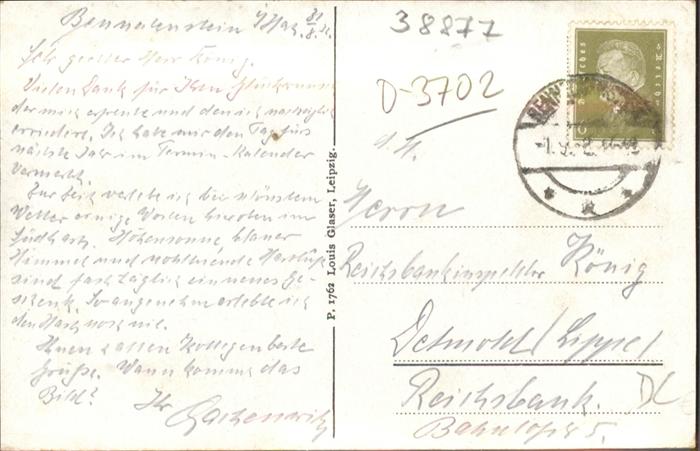 Benneckenstein / Harz 31/8. 32.
Sehr geehrter Herr König.
Vielen Dank für Ihren Glückwunsch
der mich erfreute und den ich nachträglich
erwidere. Ich habe mir den Tag fürs
nächste Jahr im Termin-Kalender
vermerkt.
Zur Zeit verlebe ich bei schönstem
Wetter einige Wochen hier oben im
Südharz. Höhensonne, blauer
Himmel und wohltuende Harzluft
sind fast täglich ein neues Ge-
schenk. So angenehm erlebte ich
den Harz noch nie.
Ihnen & allen Kollegen beste
Grüße. Wann kommt das
Bild?
Ihr
P. 1762 Louis Glaser, Leipzig.
38877
D-3702
Herrn
Reichsbankinspektor König
Detmold / Lippe /
Reichsbank.
DL